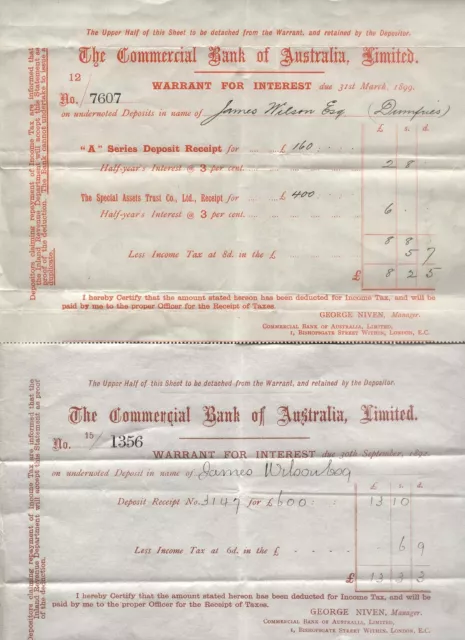 The Upper Half of this Sheet to be detached from the Warrant, and retained by the Depositor.
The Commercial Bank of Australia, Limited.
12
No. 7607
WARRANT FOR INTEREST due 31st March, 1899.
on undernoted Deposits in name of James Wilson Esq (Dumfries)
£ s. d.
"A" Series Deposit Receipt for £ 160
Half-year's Interest @ 3 per cent. 2 8
The Special Assets Trust Co., Ltd., Receipt for £ 400
Half-year's Interest @ 3 per cent. 6
8 8
Less Income Tax at 8d. in the £ 5 7
£ 8 2 5
I hereby Certify that the amount stated hereon has been deducted for Income Tax, and will be
paid by me to the proper Officer for the Receipt of Taxes.
GEORGE NIVEN, Manager.
COMMERCIAL BANK OF AUSTRALIA, LIMITED,
1, BISHOPSGATE STREET WITHIN, LONDON, E.C.
Depositors claiming repayment of Income Tax are informed that
the Inland Revenue Department will accept this Statement as
proof of the deduction. The Bank cannot undertake to issue a
duplicate.
The Upper Half of this Sheet to be detached from the Warrant, and retained by the Depositor.
The Commercial Bank of Australia, Limited.
No. 15/1356
WARRANT FOR INTEREST due 30th September,
on undernoted Deposit in name of James Wilson Esq
£ s. d.
Deposit Receipt No. 3147 for £600 13 10
Less Income Tax at 6d. in the £ 6 9
£ 13 3 3
I hereby Certify that the amount stated hereon has been deducted for Income Tax, and will be
paid by me to the proper Officer for the Receipt of Taxes.
GEORGE NIVEN, Manager.
COMMERCIAL BANK OF AUSTRALIA, LIMITED,
1, BISHOPSGATE STREET WITHIN, LONDON, E.C.
Depositors claiming repayment of Income Tax are informed that the
Inland Revenue Department will accept this Statement as proof
of the deduction.